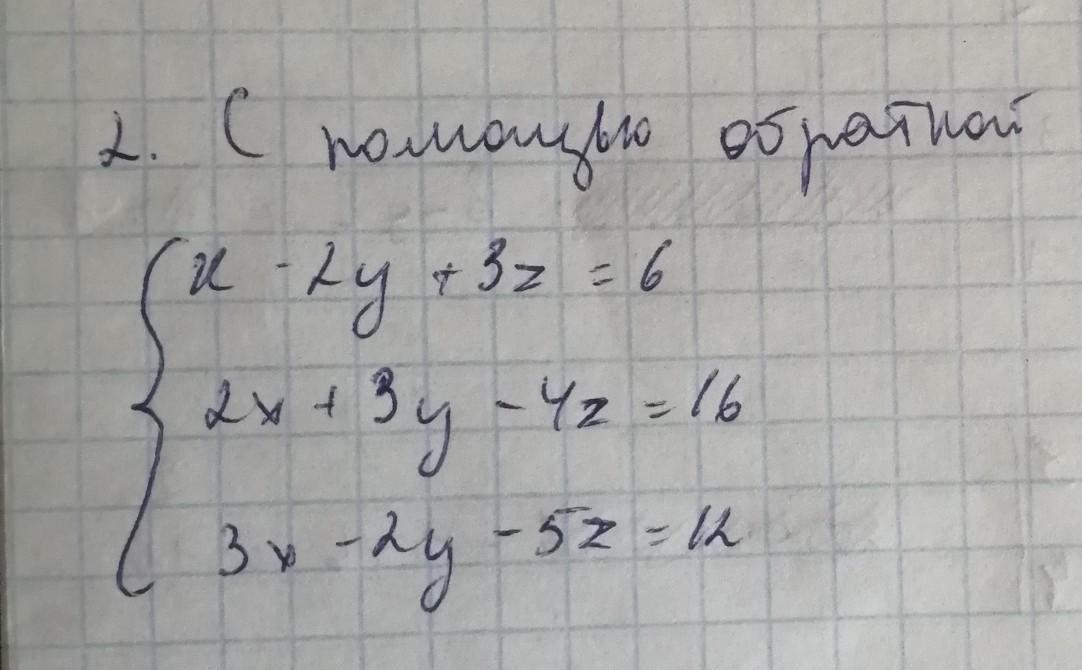 2. С помощью обратной
x - 2y + 3z = 6
2x + 3y - 4z = 16
3x - 2y - 5z = 12